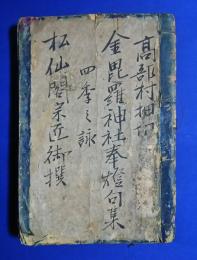 高部村押切
金毘羅神社奉燈句集
四季之詠
松仙閣菜近御撰